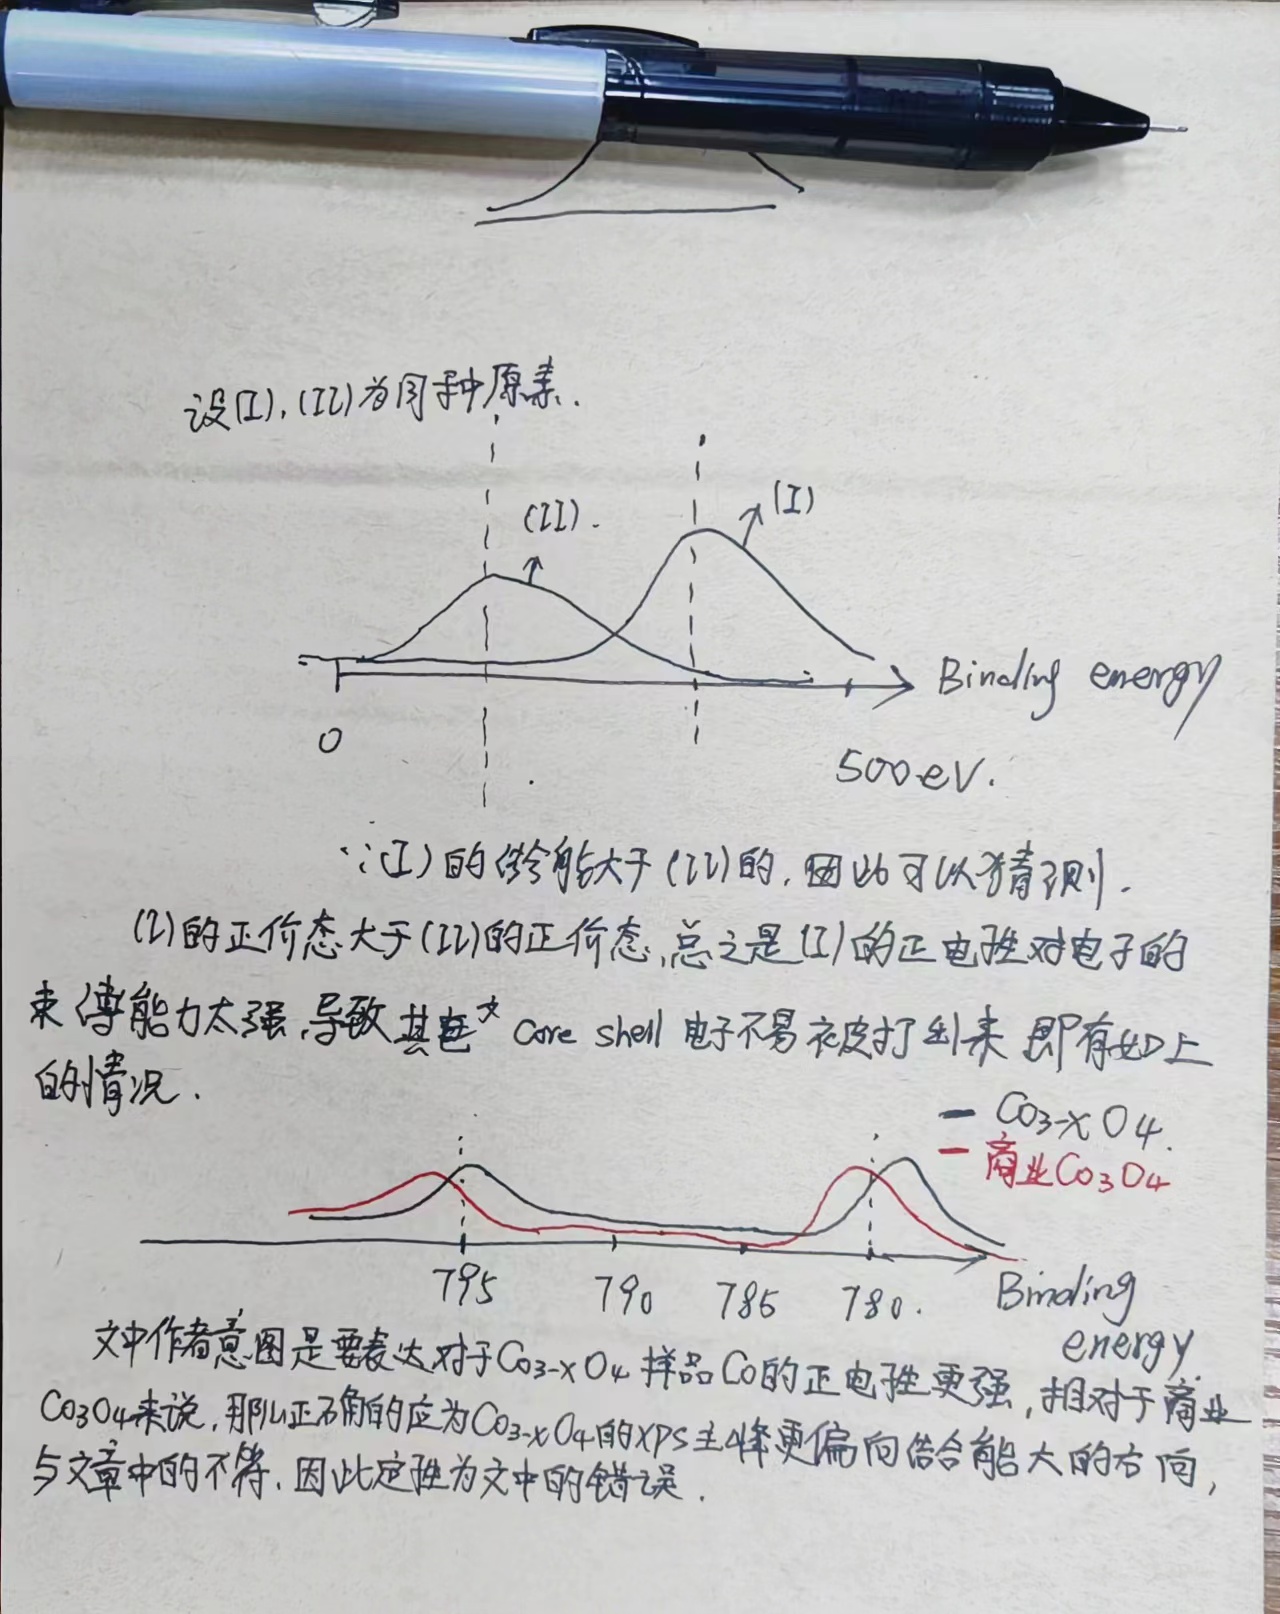 设(I), (II)为同种原素.
(II).
(I)
Binding energy
0
500eV.
∵(I)的结合能大于(II)的, 因此可以猜测.
(I)的正价态大于(II)的正价态, 总之是(I)的正电性对电子的
束缚能力太强, 导致其 core shell 电子不易被打出来 即有如上
的情况.
Co3-xO4.
商业Co3O4
795
790
785
780.
Binding
energy
文中作者意图是要表达对于Co3-xO4样品Co的正电性更强, 相对于商业
Co3O4来说, 那么正确的应为Co3-xO4的XPS主峰更偏向结合能大的方向,
与文章中的不符. 因此定性为文中的错误.